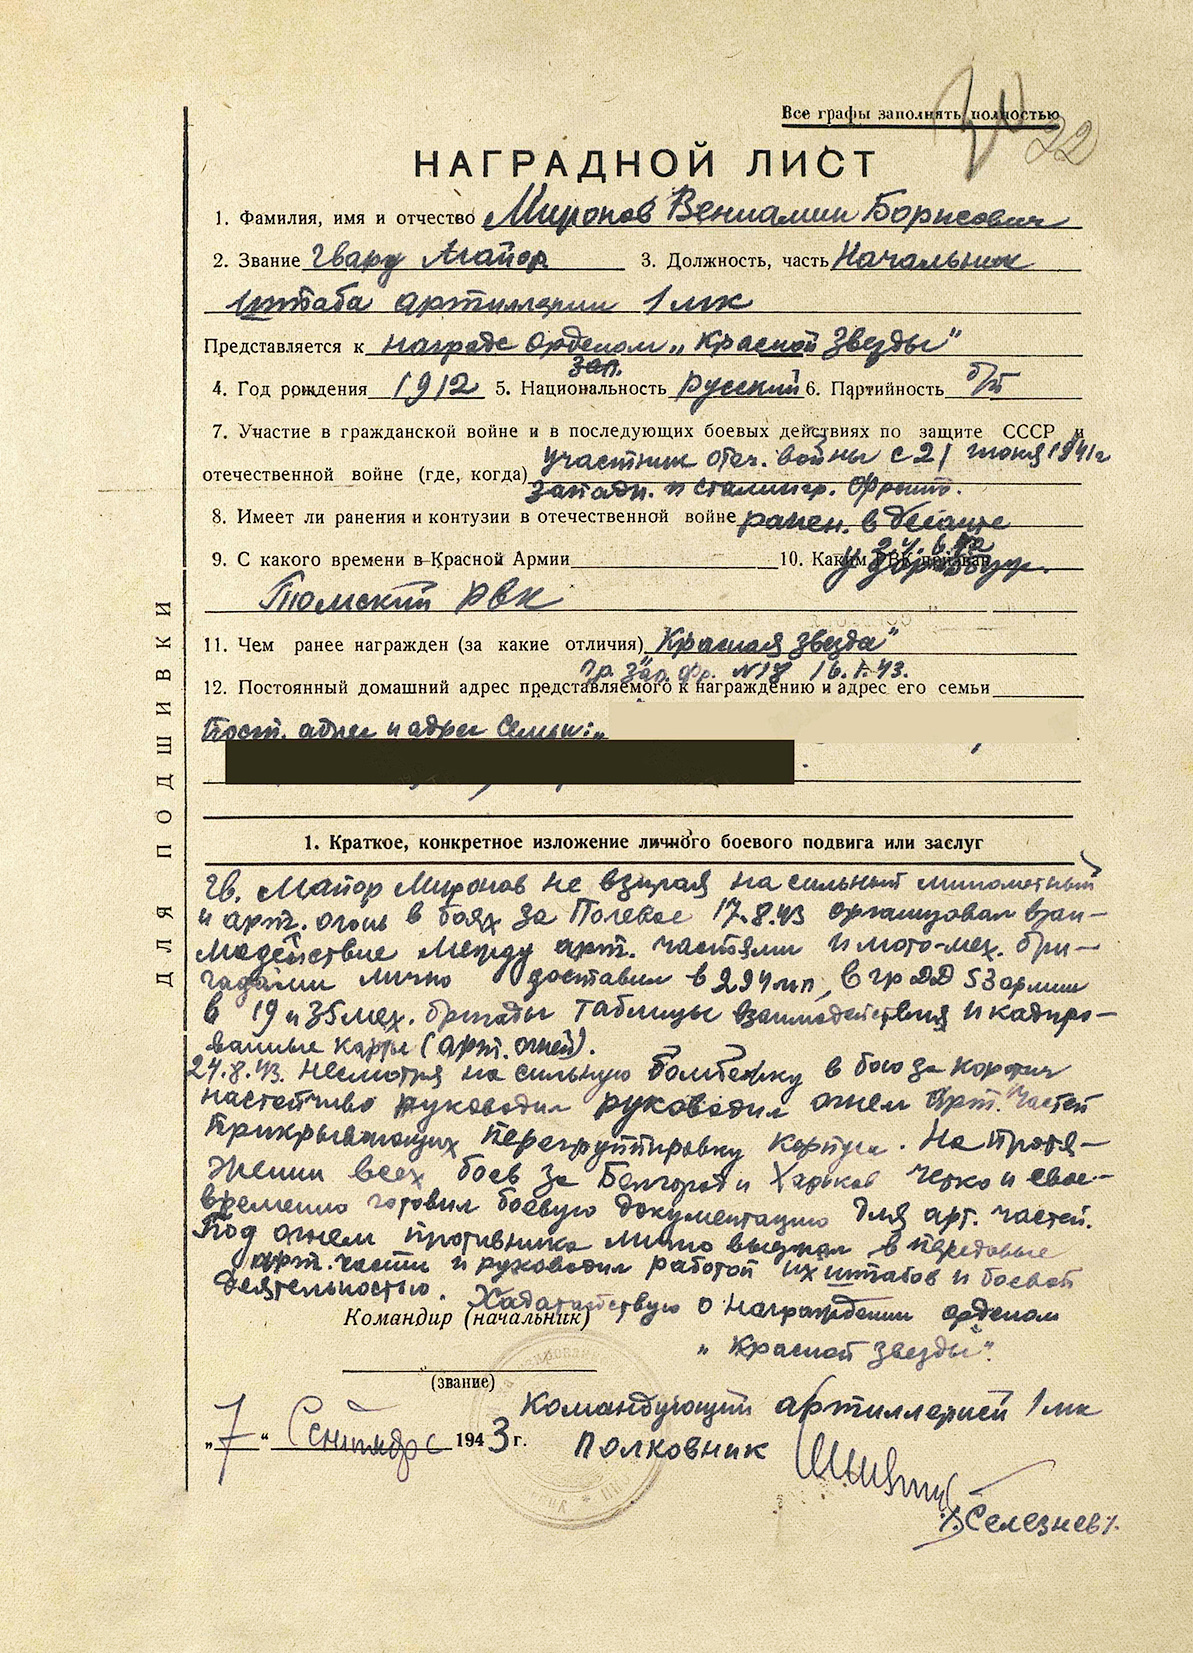 Все графы заполнять полностью
22
НАГРАДНОЙ ЛИСТ
1. Фамилия, имя и отчество Миронов Вениамин Борисович
2. Звание Гвард Майор 3. Должность, часть Начальник
штаба артиллерии 1 мк
Представляется к награде Орденом „Красной Звезды"
4. Год рождения 1912 5. Национальность русский 6. Партийность б/п
7. Участие в гражданской войне и в последующих боевых действиях по защите СССР и
участник отеч. войны с 21 июня 1941г
отечественной войне (где, когда)
западн. и Сталингр. Фронт.
8. Имеет ли ранения и контузии в отечественной войне ранен. в десанте
9. С какого времени в Красной Армии 10. Каким РВК призван
Томский РВК
11. Чем ранее награжден (за какие отличия) „Красная звезда"
№18 16.1.43.
12. Постоянный домашний адрес представляемого к награждению и адрес его семьи
Пост. адрес и адрес семьи:
ДЛЯ ПОДШИВКИ
1. Краткое, конкретное изложение личного боевого подвига или заслуг
Гв. Майор Миронов не взирая на сильный минометный
и арт. огонь в боях за Полевое 17.8.43 организовал взаи-
модействие между арт. частями и мото-мех. бри-
гадами лично доставил в 294мп, в гр ДД 53 армии
в 19 и 35 мех. бригады таблицы взаимодействия и кадиро-
ванные карты (арт. огней).
24.8.43. Несмотря на сильную бомбежку в бою за Коротич
настойчиво руководил руководил огнем Арт. Частей
Прикрывающих перегруппировку корпуса. На протя-
жении всех боев за Белгород и Харьков четко и свое-
временно готовил боевую документацию для арт. частей.
Под огнем противника лично выезжал в передовые
арт. части и руководил работой их штабов и боевой
деятельностью. Ходатайствую о награждении орденом
Командир (начальник)
„Красной звезды".
(звание)
Командующий артиллерией 1 мк
„7" Сентября 1943 г. Полковник
/Селезнев/.